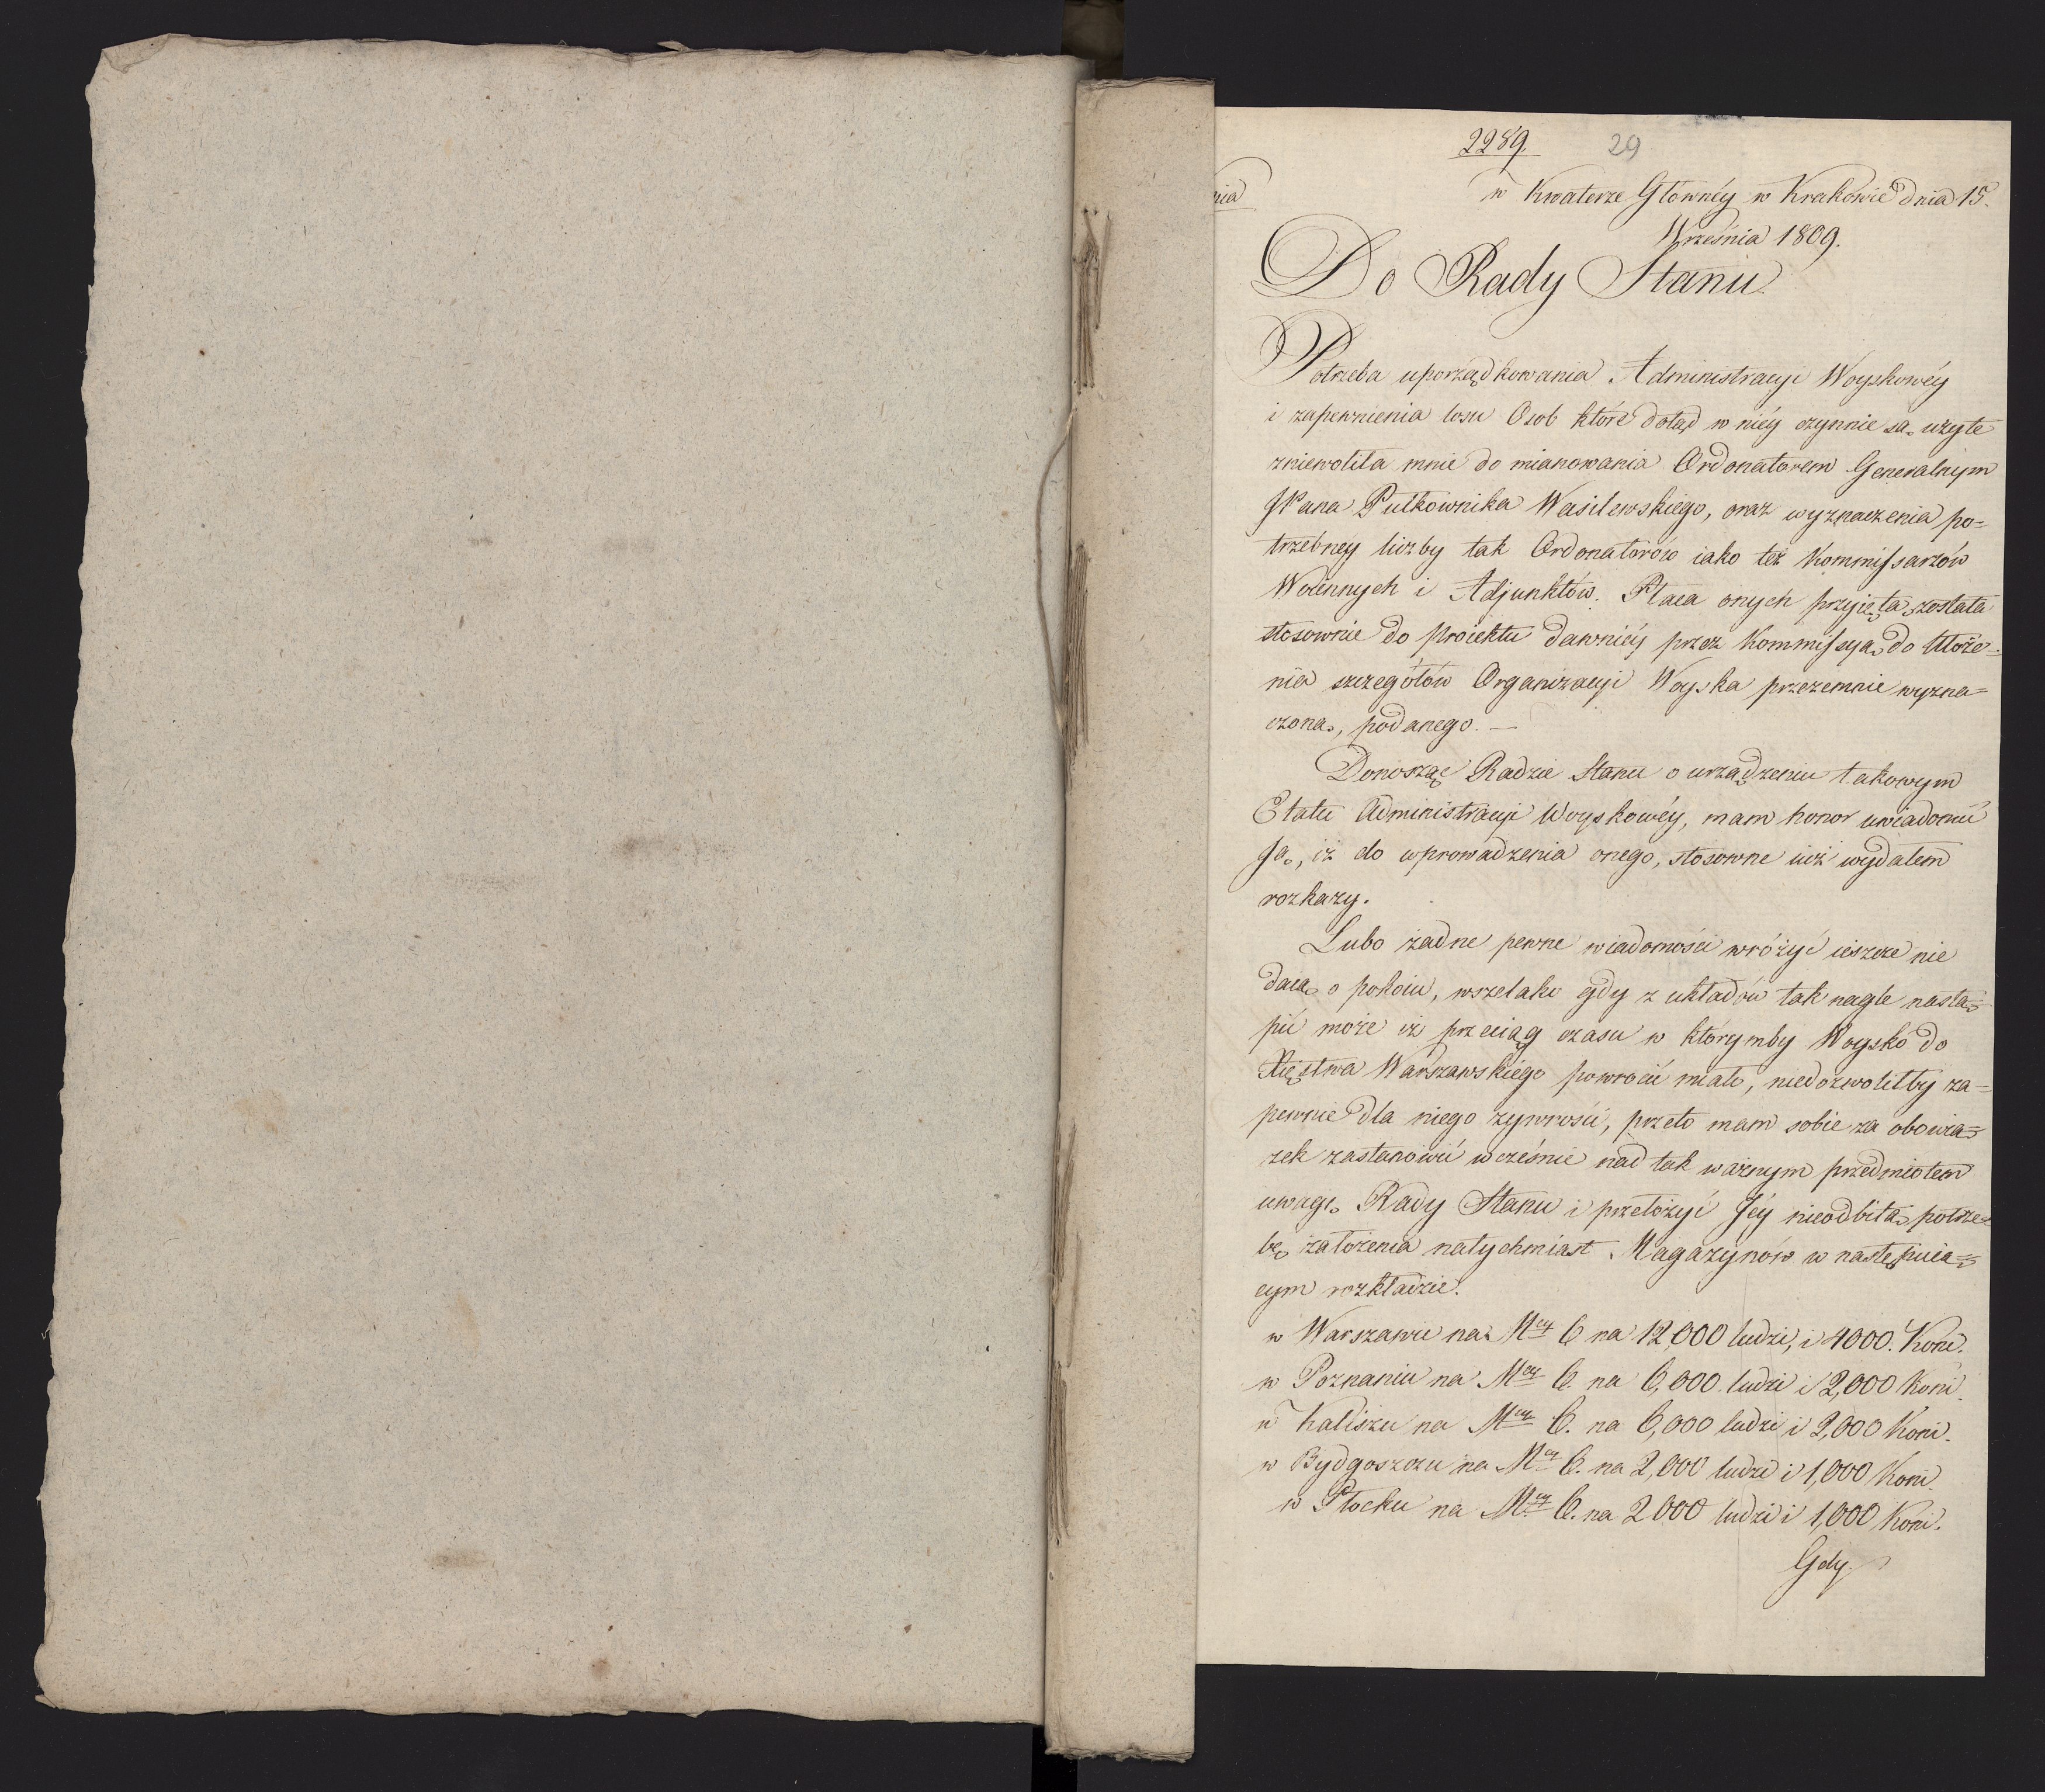 2289.
29
nia
w Kwaterze Głownéy w Krakowie dnia 15.
Września 1809.
Do Rady Stanu
Potrzeba uporządkowania Administracyi Woyskowéy
i zapewnienia losu Osob które dotąd w niéy czynnie są użyte
zniewoliła mnie do mianowania Ordonatorem Generalnym
JPana Pułkownika Wasilewskiego, oraz wyznaczenia po=
trzebney liczby tak Ordonatorów iako też Kommissarzów
Woiennych i Adjunktów. Płaca onych przyięta została
stosownie do Proiektu dawniéy przez Kommissyą do Ułoże=
nia szczegółów Organizacyi Woyska przezemnie wyzna=
czoną, podanego. —
Donosząc Radzie Stanu o urządzeniu takowym
Etatu Administracyi Woyskowéy, mam honor uwiadomić
Ją, iż do wprowadzenia onego, stosowne iuż wydałem
rozkazy.
Lubo żadne pewne wiadomości wróżyć ieszcze nie
daią o pokoiu, wszelako gdy z układów tak nagle nastą=
pić może iż przeciąg czasu w którymby Woysko do
Xięstwa Warszawskiego powrócić miało, niedozwoliłby za=
pewnić dla niego żywność, przeto mam sobie za obowią=
zek zastanowić wcześnie nad tak ważnym przedmiotem
uwagę Rady Stanu i przełożyć Jéy nieodbitą potrze=
bę założenia natychmiast Magazynów w następuią=
cym rozkładzie.
w Warszawie na Mcy 6 na 12,000 ludzi, i 4000. Koni.
w Poznaniu na Mcy 6. na 6,000 ludzi i 2,000 Koni.
w Kaliszu na Mcy 6. na 6,000 ludzi i 2,000 Koni.
w Bydgoszczu na Mcy 6. na 2,000 ludzi i 1,000 Koni.
w Płocku na Mcy 6. na 2000 ludzi i 1,000 Koni.
Gdy